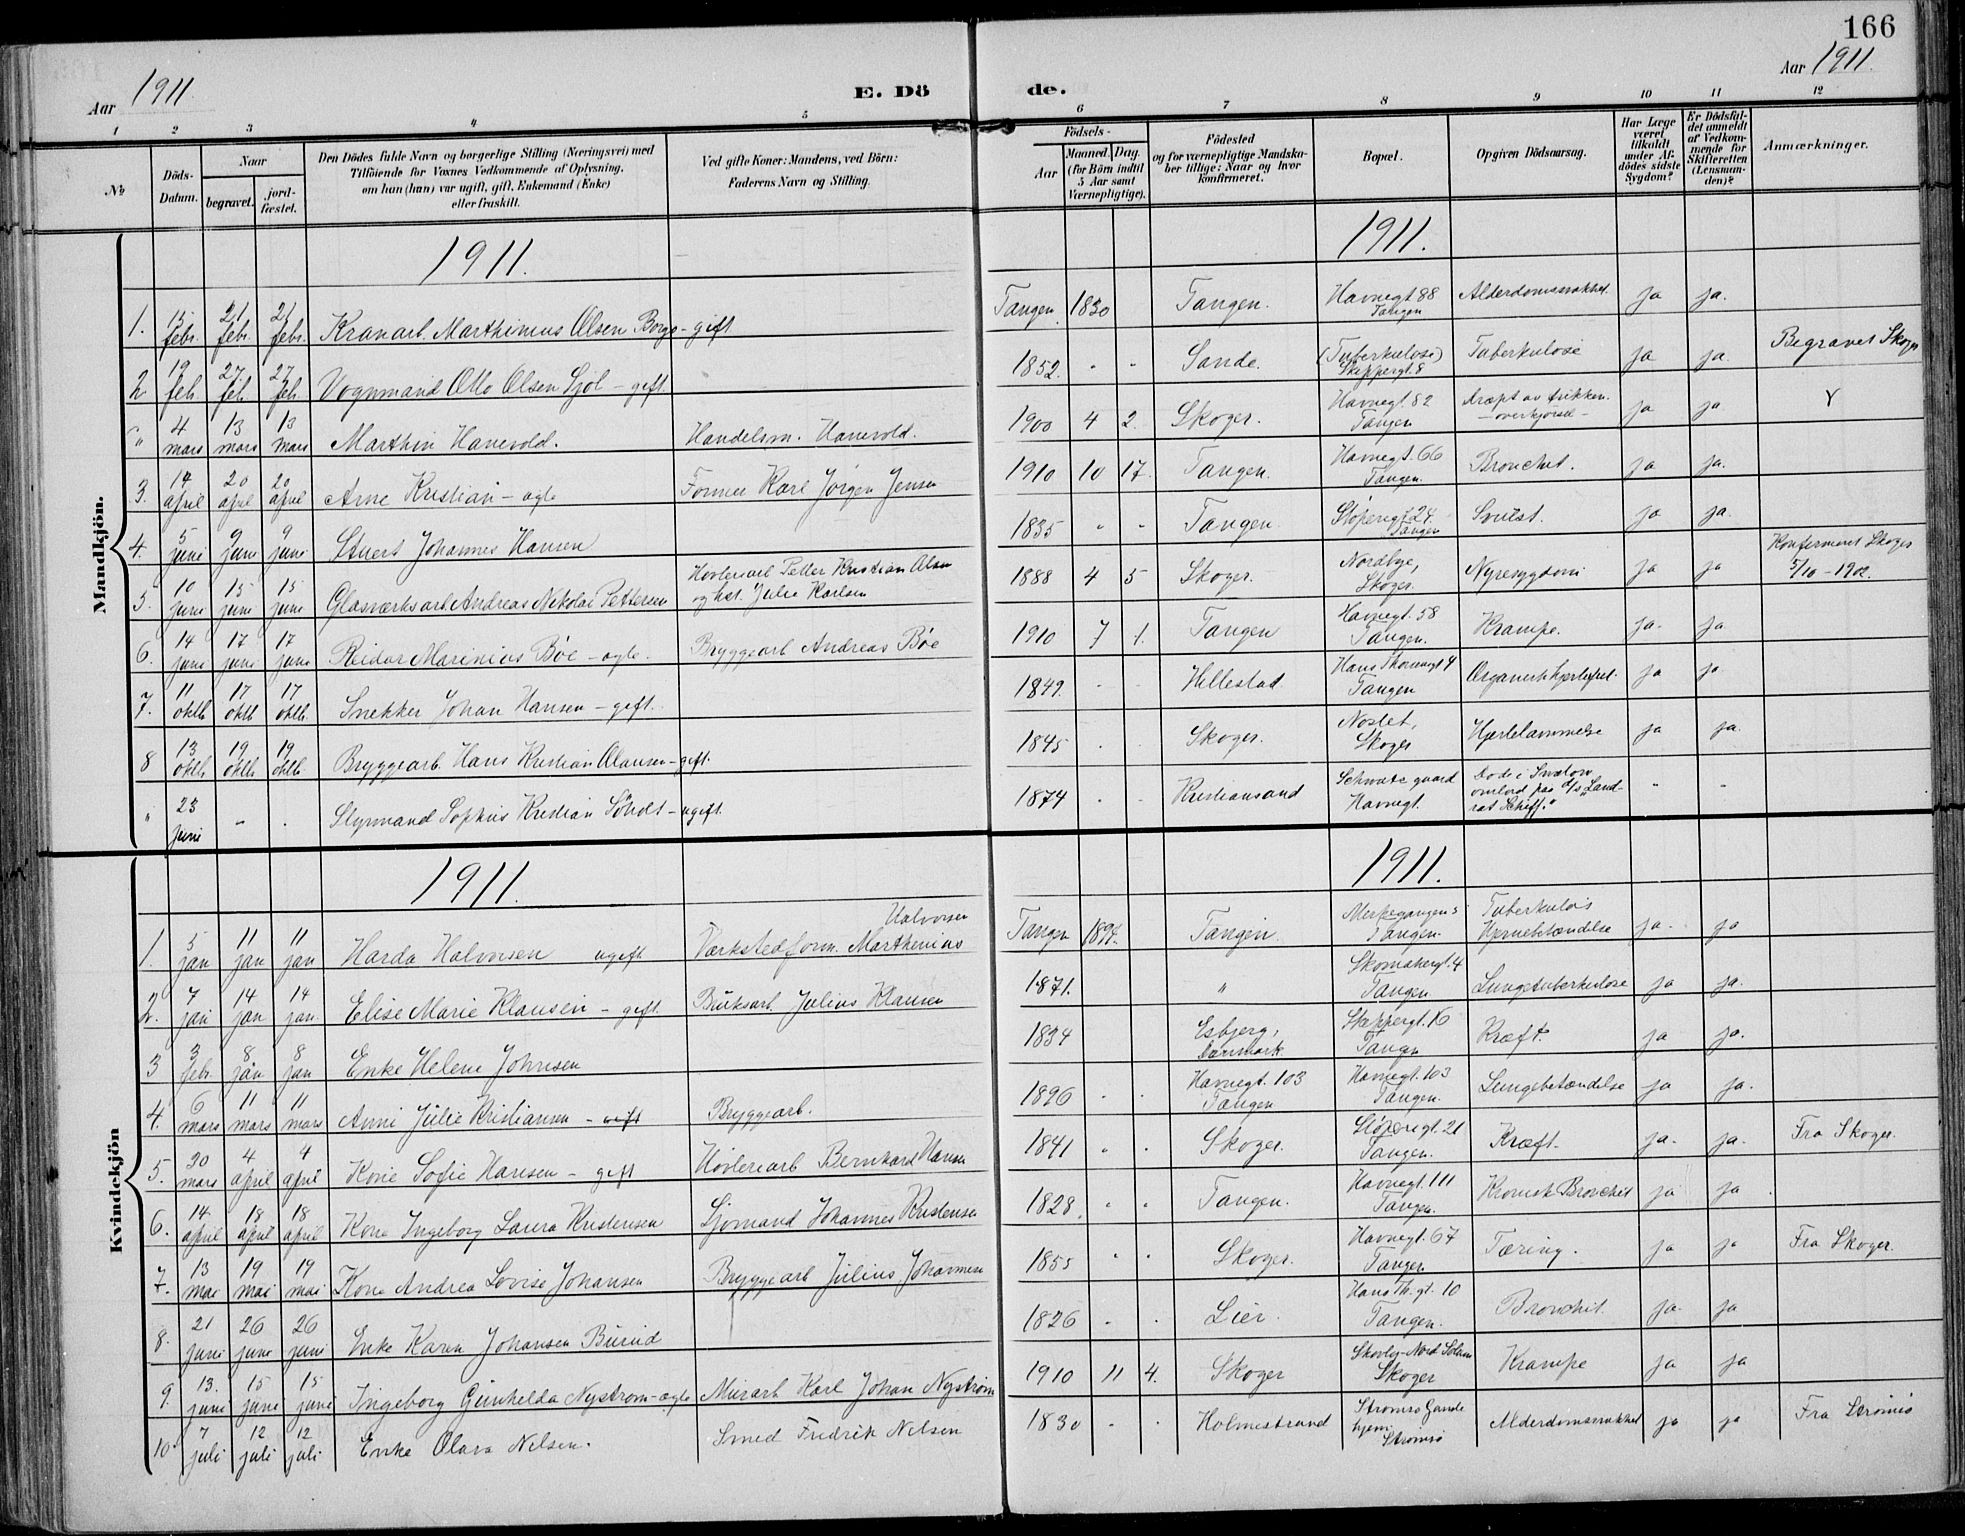 166
Aar 1911
E. Dö de.
Aar 1911.
1 2 3 4 5 6 7 8 9 10 11 12
№
Döds-Datum.
Naar
begravet.
jord-fæstet.
Den Dödes fulde Navn og borgerlige Stilling (Næringsvei) med
Tilföiende for Voxnes Vedkommende af Oplysning,
om han (hun) var ugift, gift, Enkemand (Enke)
eller fraskilt.
Ved gifte Koner: Mandens, ved Börn:
Faderens Navn og Stilling.
Födsels-
Aar
Maaned. Dag.
(for Börn indtil
5 Aar samt
Værnepligtige).
Födested
og for værnepligtige Mandska-
ber tillige: Naar og hvor
konfirmeret.
Bopæl.
Opgiven Dödsaarsag.
Har Læge
været
tilkaldt
under Af-
dödes sidste
Sygdom?
Er Dödsfal-
det anmeldt
af Vedkom-
mende for
Skifteretten
(Lensman-
den)?
Anmærkninger.
Mandkjön.
1911. 1911.
1. 15 febr. 21 febr. 21 febr. Kranarb. Marthinius Olsen Borge - gift Tangen 1830 Tangen. Havnegt 88 Tangen Alderdomssvakhet ja ja.
2 19 feb. 27 feb. 27 feb. Vognmand Otto Olsen Sjöl - gift. 1852. " " Sande. (Tuberkulose) Skippergt. 8 Tuberkulose ja ja. Begravet Skoger
" 4 mars 13 mars 13 mars Marthin Hanevold. Handelsm. Hanevold. 1900 4 2. Skoger. Havnegt. 82 Tangen dræpt av trikken. - overkjørsel - ja ja
3. 14 april 20 april 20 april Arne Kristian - egte Former Karl Jörgen Jensen 1910 10 17. Tangen. Havnegt. 66 Tangen. Bronchit. ja ja.
4. 5 juni 9 juni 9 juni Stuert Johannes Hansen 1835 " " Tangen. Støperigt. 24 Tangen ja ja.
5. 10 juni 15 juni 15 juni Glasværksarb. Andreas Nikolai Pettersen Høvleriarb Petter Kristian Olsen og hst. Julie Karlsen 1888 4 5 Skoger. Nordbye, Skoger. Nyresygdom ja ja Konfirmeret Skoger 5/10-1902.
6. 14 juni 17 juni 17 juni Reidar Marinius Böe - egte. Bryggearb Andreas Böe 1910 7 1. Tangen Havnegt. 58 Tangen. Krampe. ja. ja
7. 11 oktb 17 oktb 17 oktb. Snekker Johan Hansen - gift. 1849. - - Hillestad. Hans Thornesgt 4 Tangen Organisk hjertefeil. ja ja
8 13 oktb. 19 oktb. 19 oktb. Bryggearb. Hans Kristian Clausen - gift. 1845 . . Skoger. Noslet, Skoger Hjertelammelse ja ja.
" 23 juni - . Styrmand Sophus Kristian - ugift. 1874 . . Kristiansand Schwartz gaard Havnegt. Døde i ombord paa d/s "Land- rat Schiff." " "
Kvindekjön
1911. 1911.
1. 5 jan 11 jan 11 jan Harda Halvorsen ugift Værkstedform. Marthinius Halvorsen Tangen 1894. Tangen. Tangen. Tuberkuløs Hjernebetændelse ja. ja
2. 7 jan 14 jan 14 jan. Elise Marie Klausen - gift. Bruksarb. Julius Klausen 1871. " Skomakergt. 4 Tangen Lungetuberkulose ja ja.
3 3 febr. 8 jan 8 jan Enke Helene Johnsen 1834 Esbjerg, Danmark. Skippergt. 16 Tangen Kræft. ja ja.
4. 6 mars 11 mars 11 mars Anni Julie Kristiansen - gift Bryggearb. 1896 . . Havnegt. 103 Tangen Havnegt. 103 Tangen. Lungebetændelse ja ja.
5. 30 mars 4 april 4 april Kone Sofie Hansen - gift Høvleriarb Bernhard Hansen 1841 . . Skoger. Støperigt. 21 Tangen. Kræft. ja. ja. Fra Skoger.
6. 14 april 18 april 18 april Kone Ingeborg Laura Kristensen Sjømand Johannes Kristensen 1828. . . Tangen. Havnegt. 111 Tangen. Kronisk Bronchit ja ja.
7. 13 mai 19 mai 19 mai Kone Andrea Lovise Johansen Bryggearb Julius Johannesen 1855 . . Skoger. Havnegt. 67 Tangen Tæring. ja ja Fra Skoger.
8. 21 juni 26 juni 26 juni Enke Karen Johansen Burud 1826 . . Lier. Hans Th. gt. 10 Tangen. Bronchit. ja. ja
9. 13. juni 15 juni 15 juni Ingeborg Gunhelda Nystrøm - egte Murarb Karl Johan Nystrøm 1910 11 4. Skoger Skoger Krampe ja ja
10 7 juli 12 juli 12 juli Enke Olava Nilsen. Smed Fredrik Nilsen 1830 . . Holmestrand Strømsø Gamle hjem, Strømsø Alderdomssvakhet ja ja Fra Strømsø